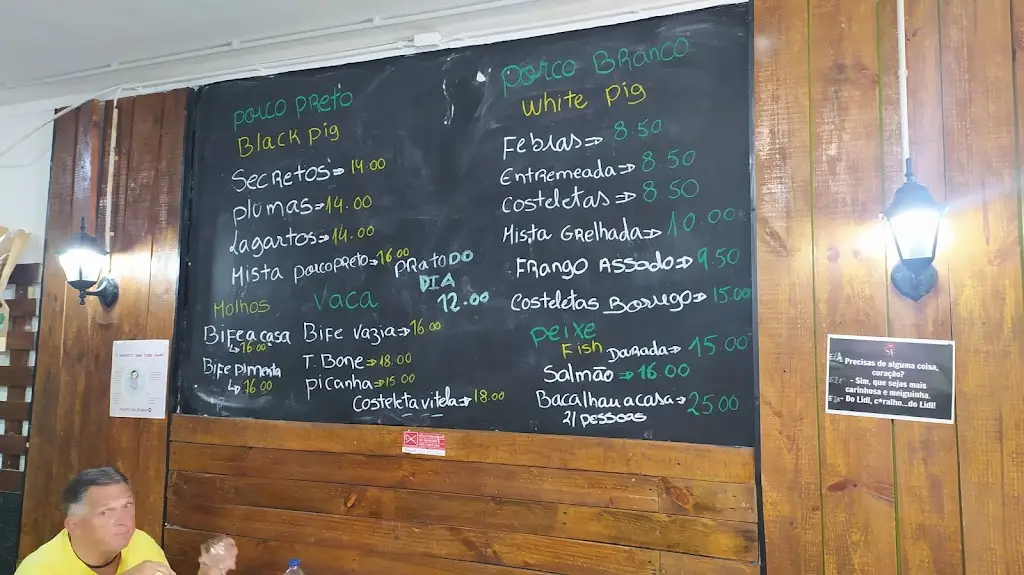 Porco Preto
Black Pig
Secretos 14.00
Plumas 14.00
Lagartos 14.00
Mista porco preto 16.00
Prato do
Dia
12.00
Molhos
Bife a casa
16.00
Bife pimenta
16.00
Vaca
Bife vazia 16.00
T. Bone 18.00
Picanha 15.00
Costeleta vitela 18.00
Porco Branco
White Pig
Febras 8.50
Entremeada 8.50
Costeletas 8.50
Mista Grelhada 10.00
Frango Assado 9.50
Costeletas Borrego 15.00
Peixe
Fish
Dorada 15.00
Salmão 16.00
Bacalhau a casa 25.00
2/ pessoas
Ela Precisas de alguma coisa,
coração?
Ele - Sim, que sejas mais
carinhosa e meiguinha.
Ela - Do Lidl, c*ralho...do Lidl!